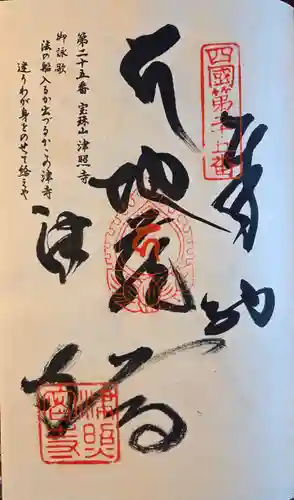 四國第二十五番
奉納
本
地蔵
津
寺
第二十五番 宝珠山 津照寺
御詠歌
法の船入るか出づるかこの津寺
迷うわが身をのせて給えや
津照
寺